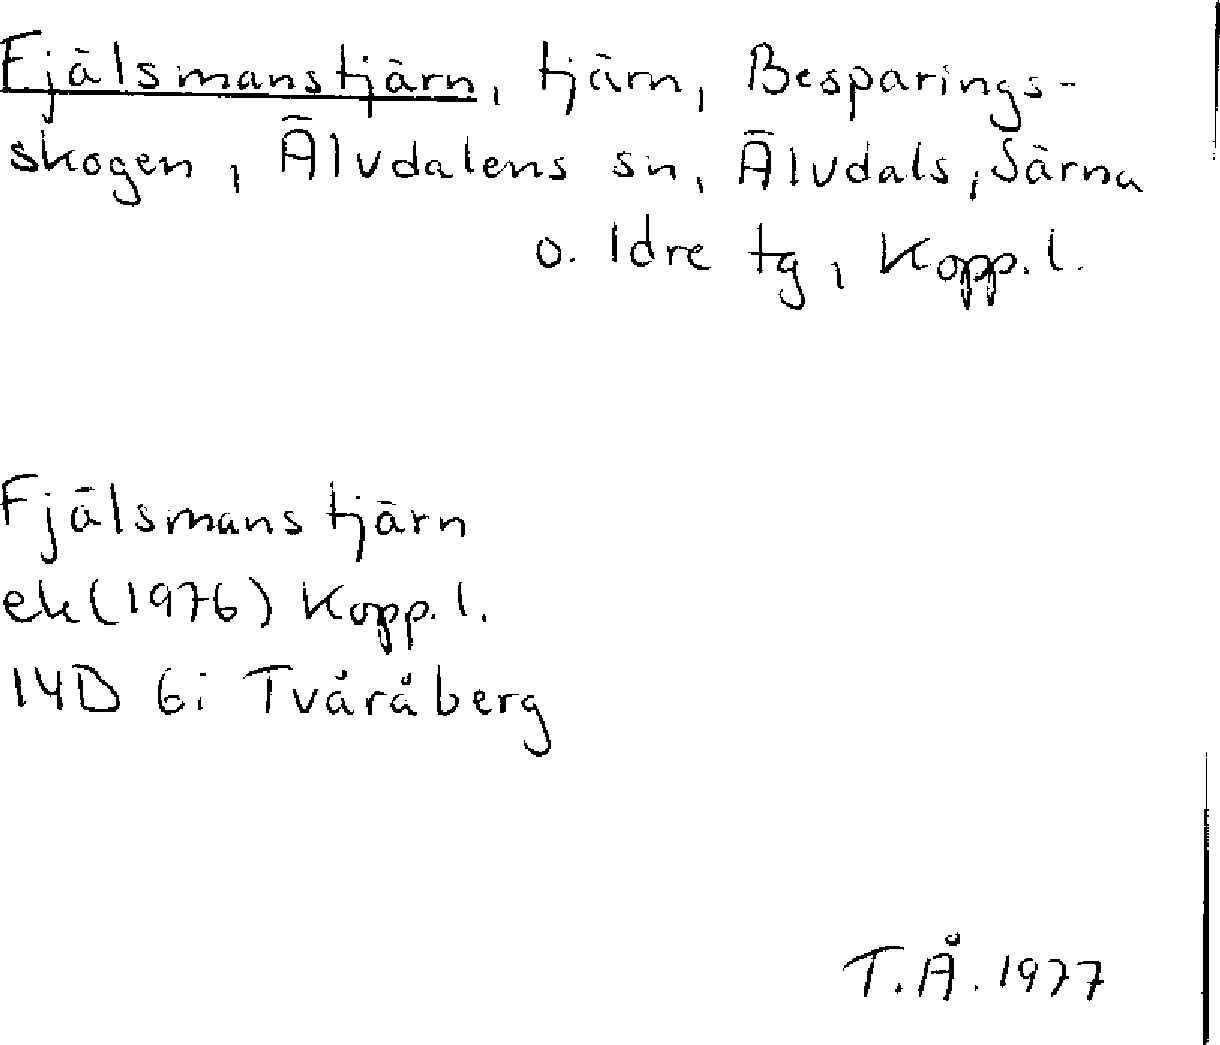 Fjälsmanstjärn, tjärn, Besparings-
skogen, Älvdalens sn, Älvdals, Särna
o. Idre tg, Kopp. l.
Fjälsmanstjärn
ek (1976) Kopp. l.
14D 6i Tvåråberg
T.Å. 1977